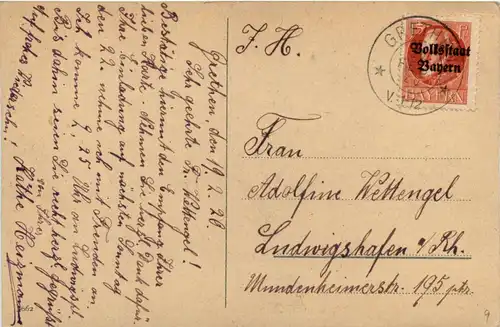 Grethen, den 19.2.20.
Sehr geehrte Fr. Wettengel!
Bestätige hiermit den Empfang Ihrer
lieben Karte. Nehmen Sie herzl. Dank dafür.
Ihre Einladung auf nächsten Sonntag
den 22. nehme ich mit Freuden an.
Ich komme 2,25 Uhr an Ludwigspl.
Bis dahin seien Sie recht herzl. gegrüßt
von Ihrer
Käthe Heizmann
F. H.
Frau
Adolfine Wettengel
Ludwigshafen a/Rh.
Mundenheimerstr. 195 ptr.
Volksstaat
Bayern
BAYERN